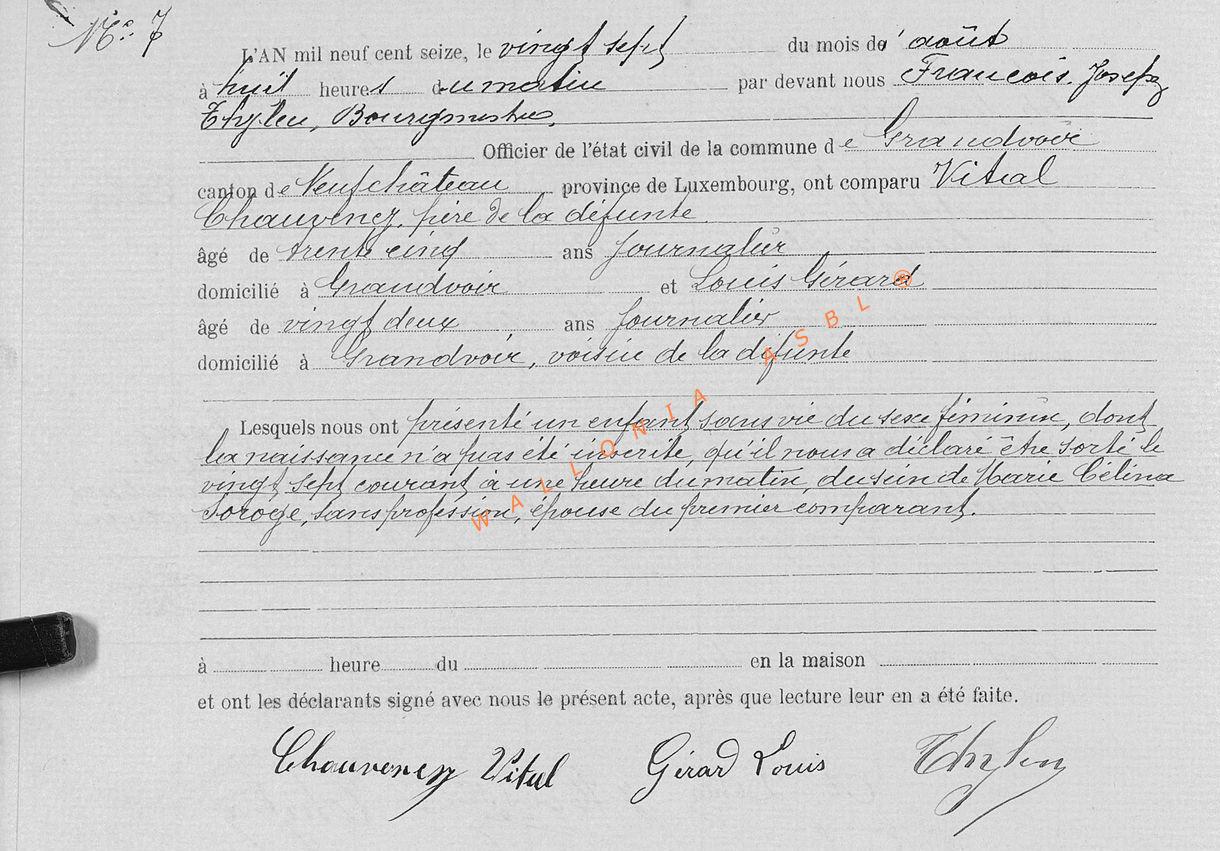 No. 7
L'AN mil neuf cent seize, le vingt sept du mois de août
à huit heures du matin par devant nous François Joseph
Thylen, Bourgmestre,
Officier de l'état civil de la commune de Grandvoir
canton de Neufchâteau province de Luxembourg, ont comparu Vital
Chauvency, père de la défunte
âgé de trente cinq ans journalier
domicilié à Grandvoir et Louis Gérard
âgé de vingt deux ans journalier
domicilié à Grandvoir, voisin de la défunte
Lesquels nous ont présenté un enfant sans vie du sexe féminin, dont
la naissance n'a pas été inscrite, qu'il nous a déclaré être sorti le
vingt sept courant à une heure du matin, du sein de Marie Célina
Soroge, sans profession, épouse du premier comparant.
à heure du en la maison
et ont les déclarants signé avec nous le présent acte, après que lecture leur en a été faite.
Chauvency Vital Gérard Louis Thylen
WALLONIA ASBL ®